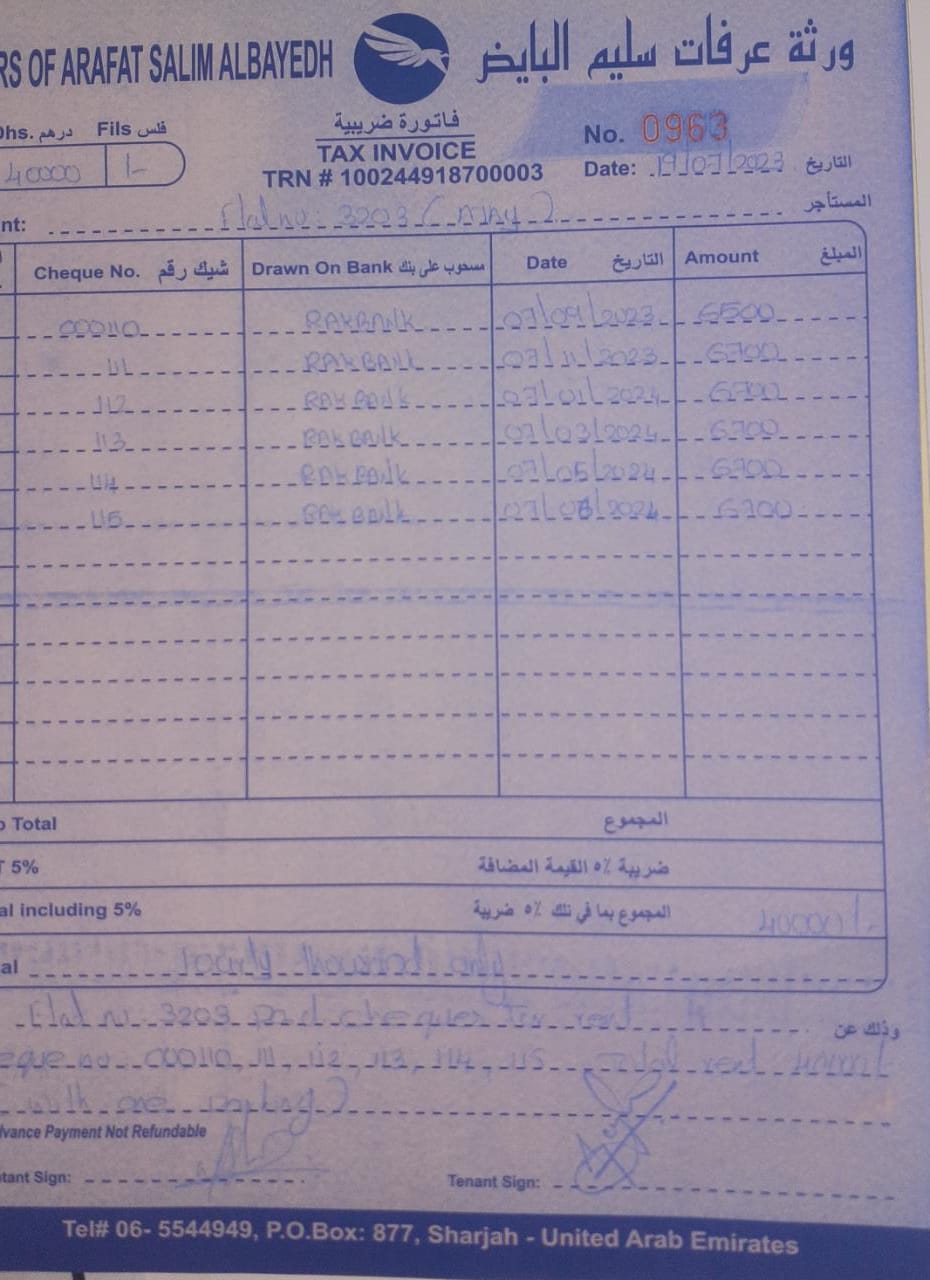 RS OF ARAFAT SALIM ALBAYEDH ورثة عرفات سليم البايض
Dhs. درهم Fils فلس
40000 1-
فاتورة ضريبية
TAX INVOICE
TRN # 100244918700003
No. 0963
Date: 19/07/2023 التاريخ
nt: Flat no: 3203 المستأجر
Cheque No. شيك رقم Drawn On Bank مسحوب على بنك Date التاريخ Amount المبلغ
000110 RAKBANK 07/09/2023 6500
111 RAKBANK 07/11/2023 6700
112 RAKBANK 07/01/2024 6700
113 RAKBANK 07/03/2024 6700
114 RAKBANK 07/05/2024 6700
115 RAKBANK 07/08/2024 6700
Total المجموع
5% ضريبة ٥٪ القيمة المضافة
al including 5% المجموع بما في ذلك ٥٪ ضريبة 40000/-
al Fourty thousand only
Flat no: 3203 cheques for rent وذلك عن
eque no 000110, 111, 112, 113, 114, 115 Total rent
with one parking)
dvance Payment Not Refundable
tant Sign: Tenant Sign:
Tel# 06- 5544949, P.O.Box: 877, Sharjah - United Arab Emirates